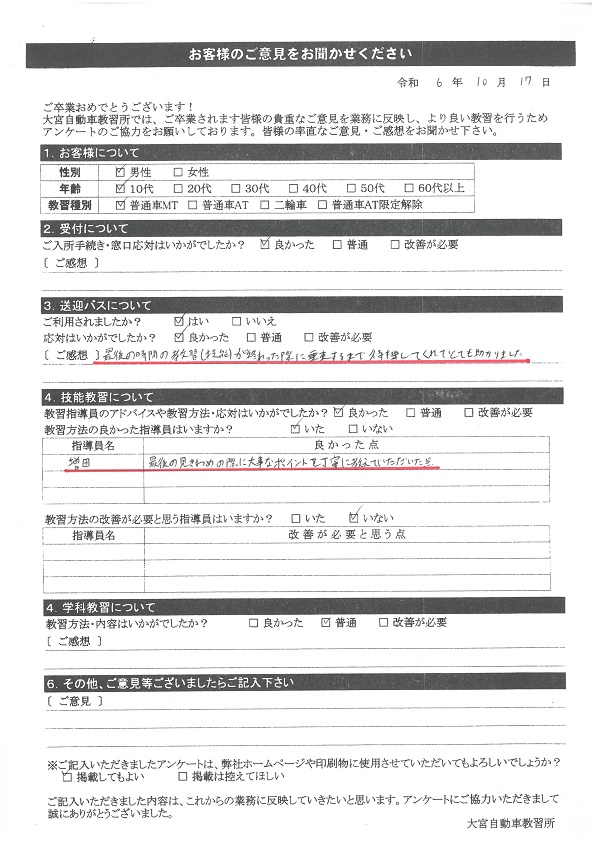 お客様のご意見をお聞かせください
令和 6 年 10 月 17 日
ご卒業おめでとうございます！
大宮自動車教習所では、ご卒業されます皆様の貴重なご意見を業務に反映し、より良い教習を行うため
アンケートのご協力をお願いしております。皆様の率直なご意見・ご感想をお聞かせ下さい。
1. お客様について
性別 ☑男性 □女性
年齢 ☑10代 □20代 □30代 □40代 □50代 □60代以上
教習種別 ☑普通車MT □普通車AT □二輪車 □普通車AT限定解除
2. 受付について
ご入所手続き・窓口応対はいかがでしたか？ ☑良かった □普通 □改善が必要
〔 ご感想 〕
3. 送迎バスについて
ご利用されましたか？ ☑はい □いいえ
応対はいかがでしたか？ ☑良かった □普通 □改善が必要
〔 ご感想 〕最後の時間の教習(技能)が終わった際に乗車するまで待機してくれてとても助かりました
4. 技能教習について
教習指導員のアドバイスや教習方法・応対はいかがでしたか？ ☑良かった □普通 □改善が必要
教習方法の良かった指導員はいますか？ ☑いた □いない
指導員名 良かった点
増田 最後の見きわめの際に大事なポイントを丁寧に教えていただいた点
教習方法の改善が必要と思う指導員はいますか？ □いた ☑いない
指導員名 改善が必要と思う点
4. 学科教習について
教習方法・内容はいかがでしたか？ □良かった ☑普通 □改善が必要
〔 ご感想 〕
6. その他、ご意見等ございましたらご記入下さい
〔 ご意見 〕
※ご記入いただきましたアンケートは、弊社ホームページや印刷物に使用させていただいてもよろしいでしょうか？
☑掲載してもよい □掲載は控えてほしい
ご記入いただきました内容は、これからの業務に反映していきたいと思います。アンケートにご協力いただきまして
誠にありがとうございました。
大宮自動車教習所